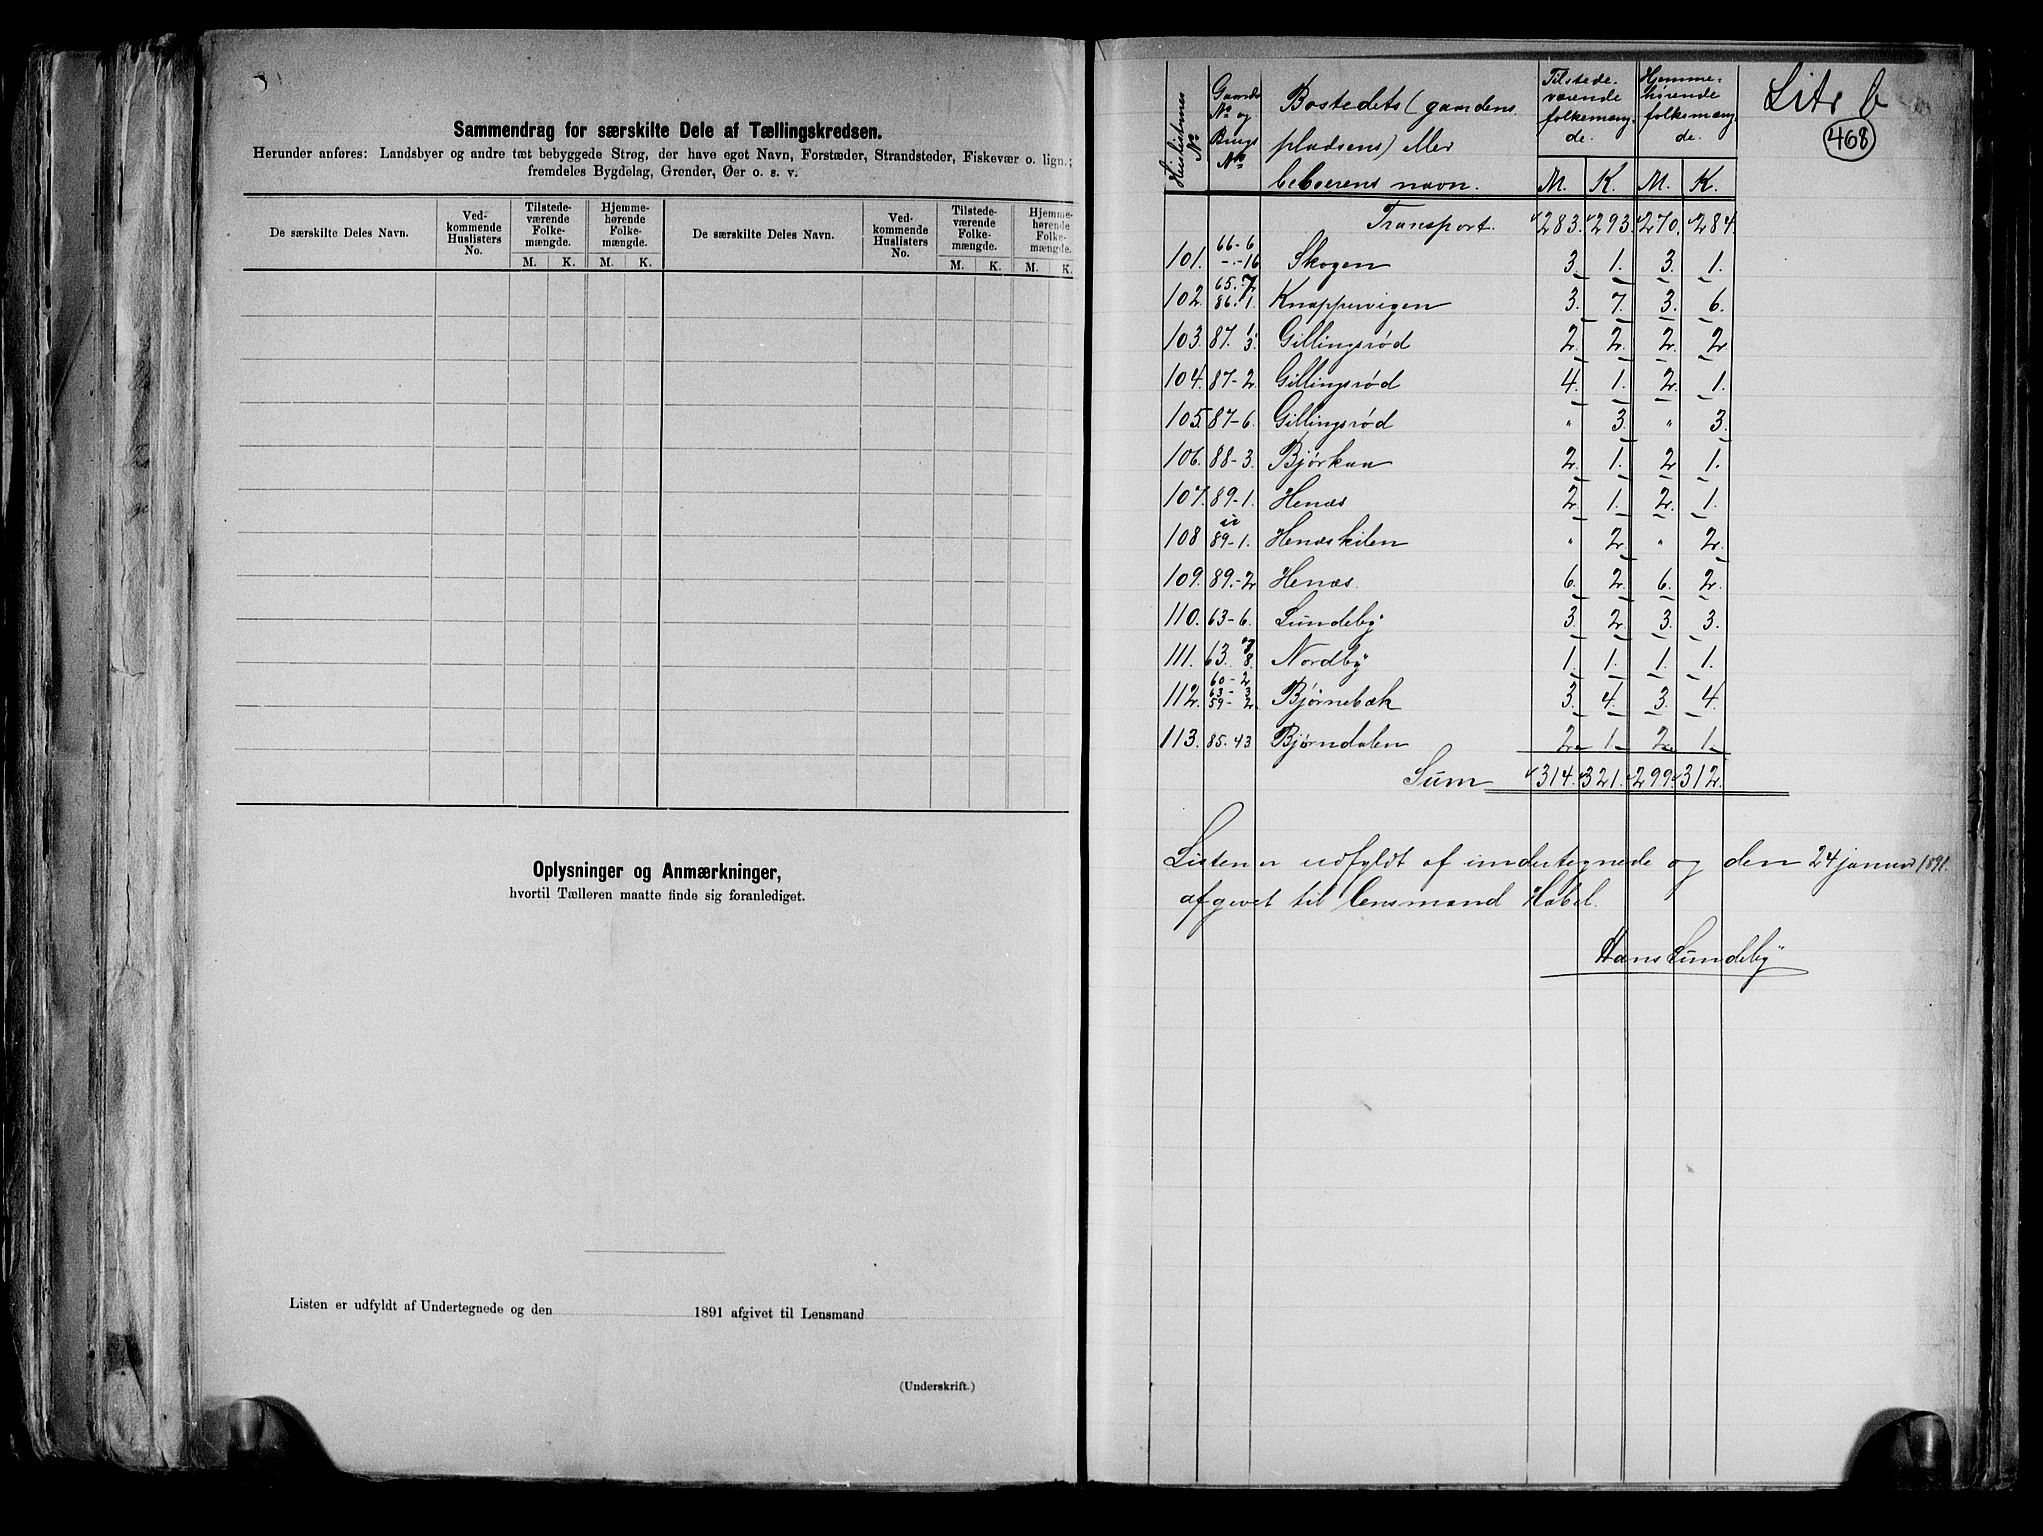 Sammendrag for særskilte Dele af Tællingskredsen.
Herunder anføres: Landsbyer og andre tæt bebyggede Strøg, der have eget Navn, Forstæder, Strandsteder, Fiskevær o. lign.;
fremdeles Bygdelag, Grender, Øer o. s. v.
De særskilte Deles Navn. | Ved-kommende Huslisters No. | Tilstede-værende Folke-mængde. M. K. | Hjemme-hørende Folke-mængde. M. K. | De særskilte Deles Navn. | Ved-kommende Huslisters No. | Tilstede-værende Folke-mængde. M. K. | Hjemme-hørende Folke-mængde. M. K.
Oplysninger og Anmærkninger,
hvortil Tælleren maatte finde sig foranlediget.
Listen er udfyldt af Undertegnede og den 1891 afgivet til Lensmand
(Underskrift.)
Litr b
468
Huslisternes No | Gaards No og Brugs No | Bostedets (gaardens, pladsens) eller beboerens navn. | Tilstede-værende folkemæng-de. M. K. | Hjemme-hørende folkemæng-de. M. K.
Transport. 283. 293. 270. 284.
101. 66-6 -.-16 Skogen 3. 1. 3. 1.
102. 65.-7 86.-1 Knappervigen 3. 7. 3. 6.
103. 87. 1. 3. Gillingsrød 2. 2. 2. 2
104. 87-2. Gillingsrød 4. 1. 2. 1.
105. 87-6. Gillingsrød " 3. " 3.
106. 88-3. Bjørkan 2. 1. 2. 1.
107. 89-1. Henæs 2. 1. 2. 1.
108 89-1. Henæskilen " 2. " 2.
109. 89.-2 Henæs. 6. 2. 6. 2.
110. 63-6. Lundeby 3. 2. 3. 3.
111. 63. 7 8. Nordby 1. 1. 1. 1.
112. 60-2 63-3 59-2. Bjørnebæk 3. 4. 3. 4.
113. 85.43 Bjørndalen 2. 1. 2. 1.
Sum 314. 321. 299. 312.
Listen er udfyldt af undertegnede og den 24 januar 1891.
afgivet til lensmand Habel.
Hans Lundeby